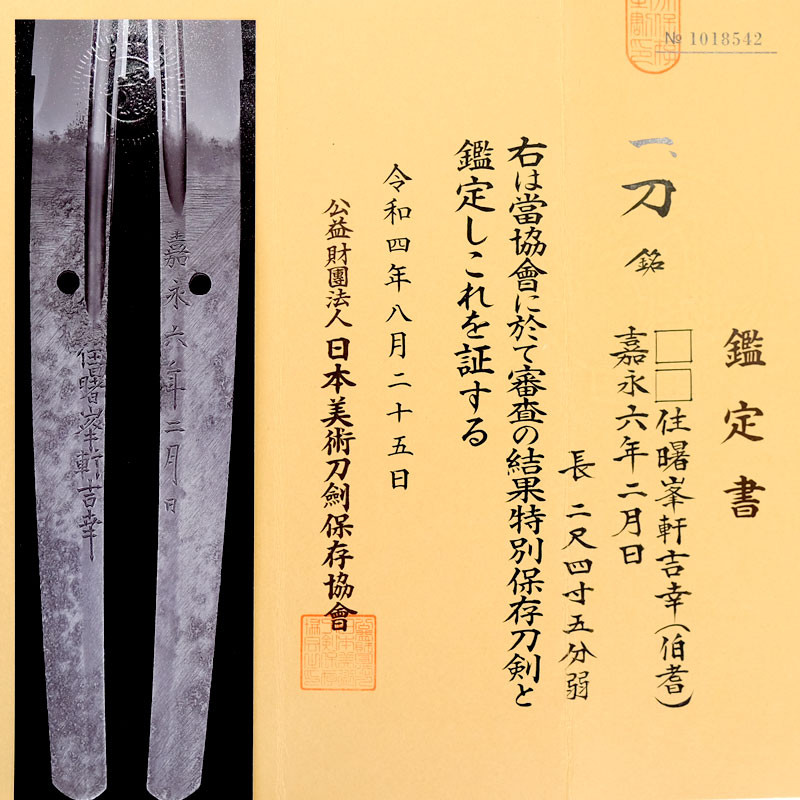 № 1018542
鑑定書
一、刀 銘 □□住曙峯軒吉幸(伯耆)
嘉永六年二月日
長 二尺四寸五分弱
右は當協會に於て審査の結果特別保存刀剣と
鑑定しこれを証する
令和四年八月二十五日
公益財團法人 日本美術刀劍保存協會
嘉永六年二月日
住曙峯軒吉幸